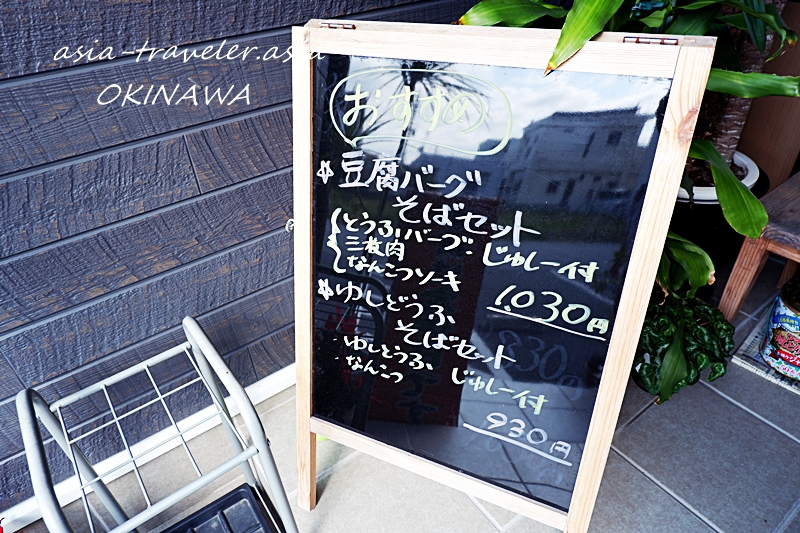 asia-traveler.asia
OKINAWA
おすすめ
☆豆腐バーグ
そばセット
とうふバーグ・じゅしー付
三枚肉
なんこつソーキ
1,030円
☆ゆしどうふ
そばセット
・ゆしどうふ じゅしー付
・なんこつ
930円